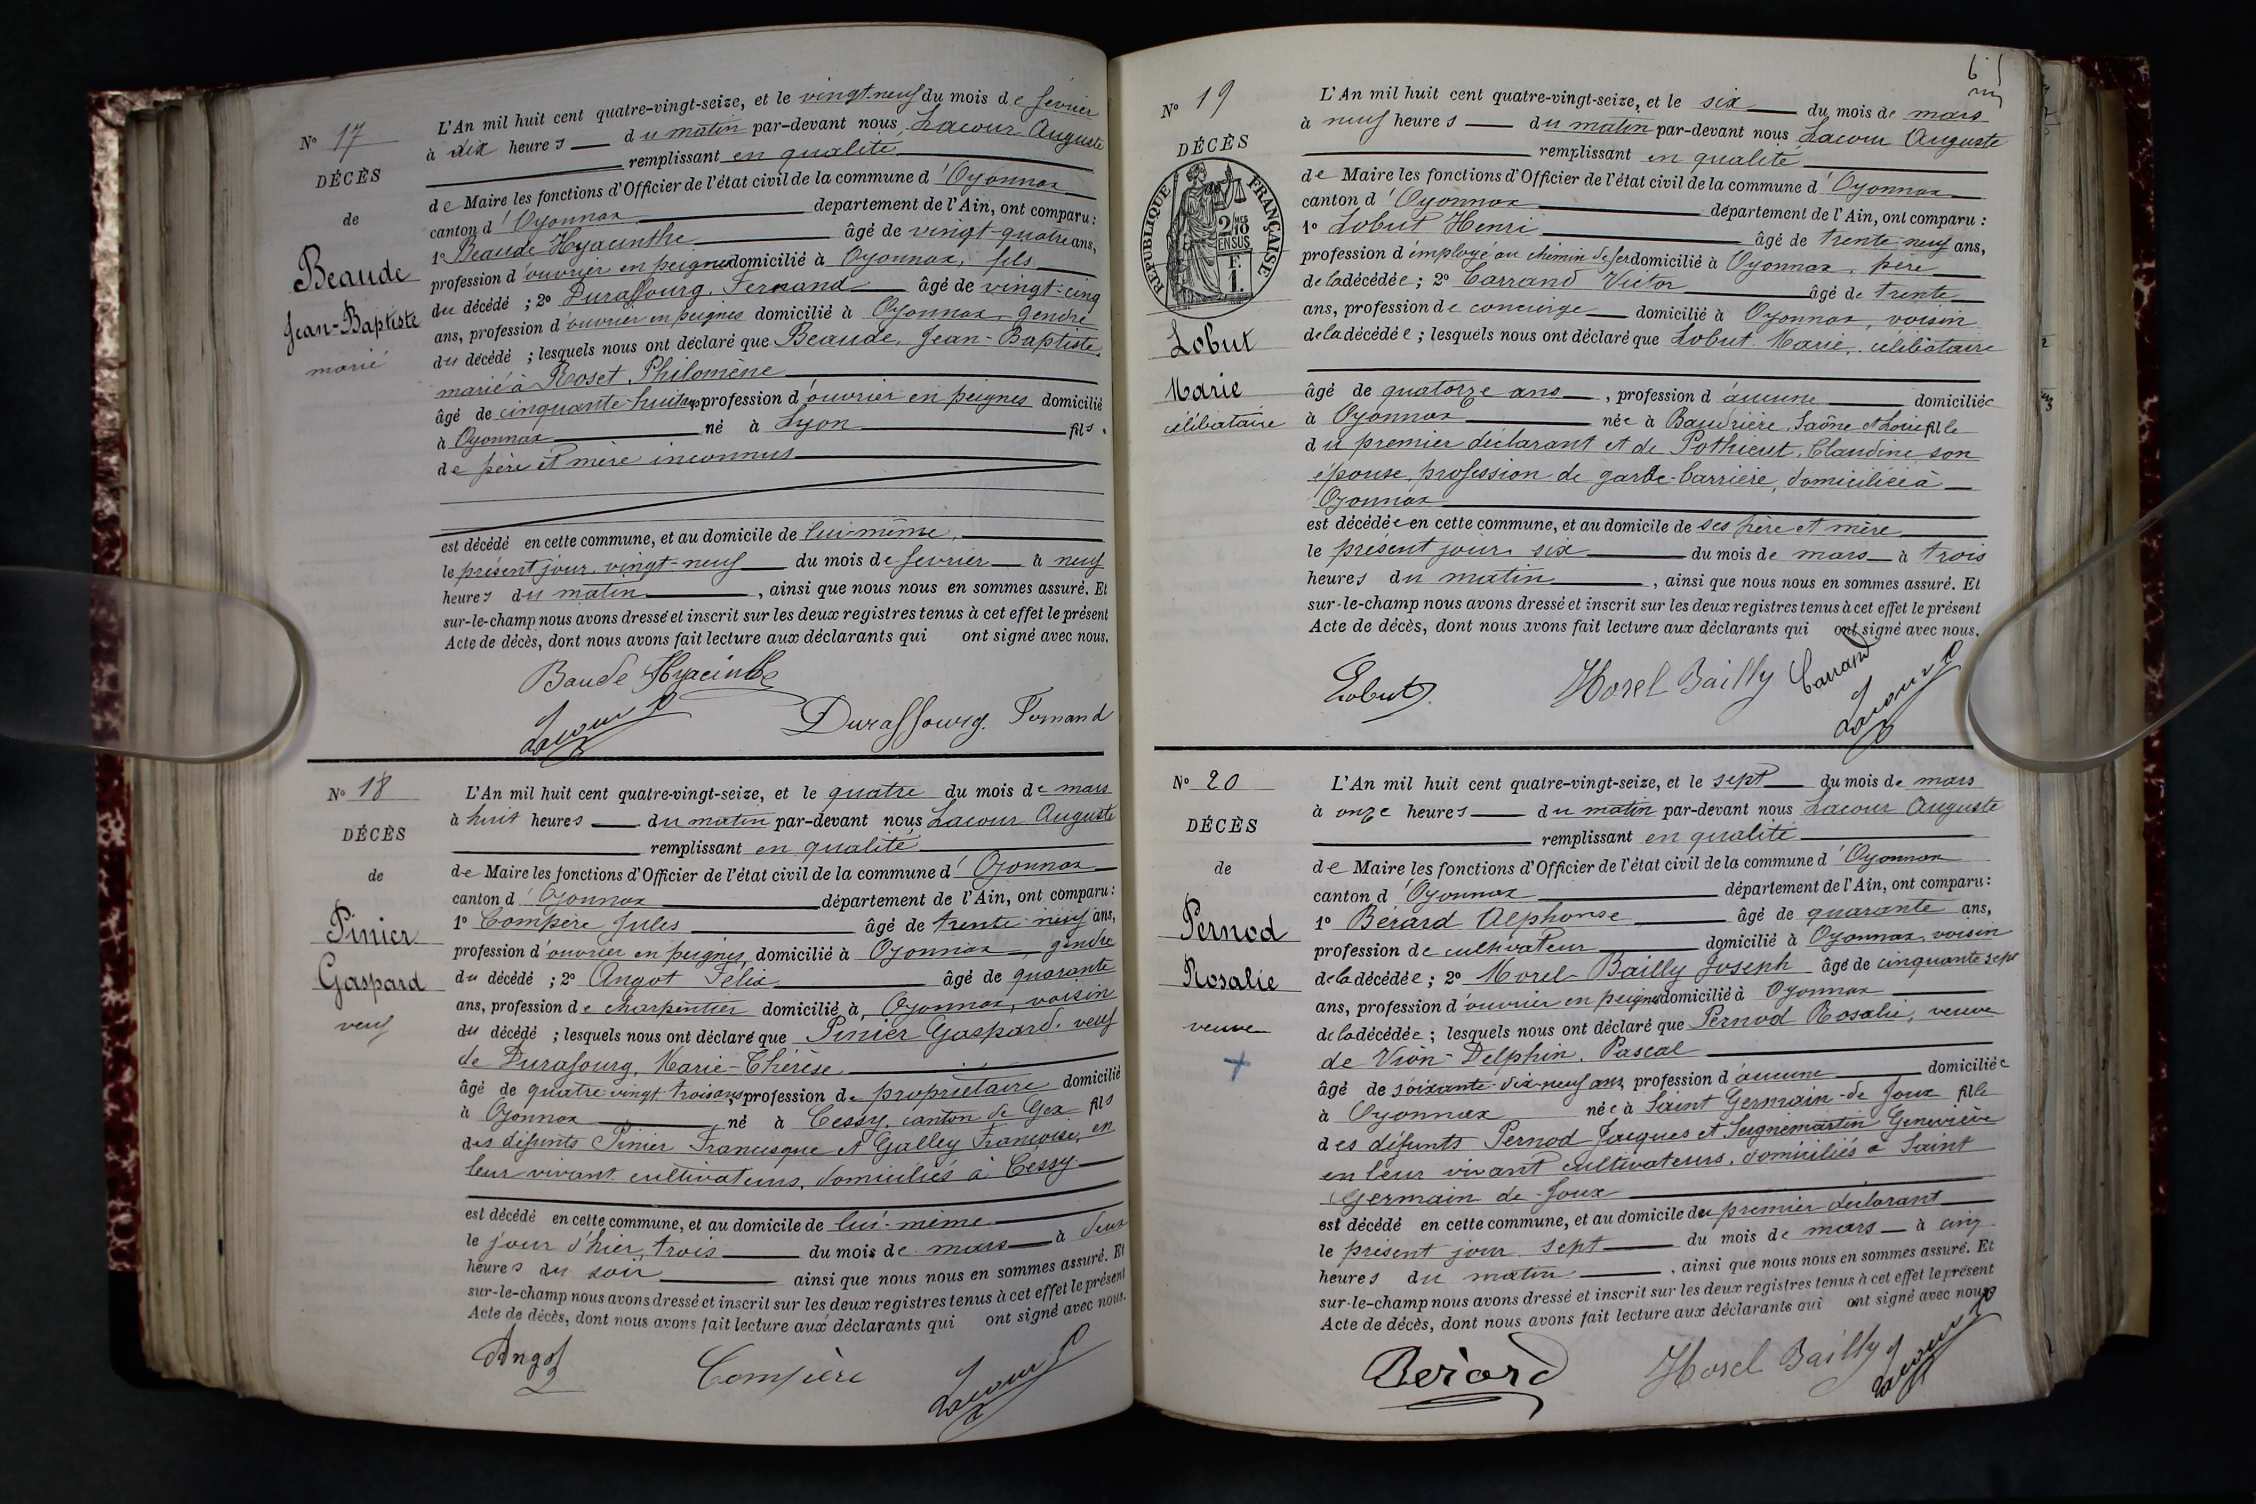 N° 17
DÉCÈS
de
Beaude
Jean-Baptiste
marié
L'An mil huit cent quatre-vingt-seize, et le vingt-neuf du mois de février
à dix heures du matin par-devant nous Lacour Auguste
remplissant en qualité
de Maire les fonctions d'Officier de l'état civil de la commune d'Oyonnax
canton d'Oyonnax département de l'Ain, ont comparu :
1° Beaude Hyacinthe âgé de vingt-quatre ans,
profession d'ouvrier en peignes domicilié à Oyonnax, fils
du décédé ; 2° Duraffourg, Fernand âgé de vingt-cinq
ans, profession d'ouvrier en peignes domicilié à Oyonnax, gendre
du décédé ; lesquels nous ont déclaré que Beaude, Jean-Baptiste,
marié à Roset, Philomène
âgé de cinquante-huit ans profession d'ouvrier en peignes domicilié
à Oyonnax né à Lyon fils
de père et mère inconnus
est décédé en cette commune, et au domicile de lui-même,
le présent jour, vingt-neuf du mois de février à neuf
heures du matin, ainsi que nous nous en sommes assuré. Et
sur-le-champ nous avons dressé et inscrit sur les deux registres tenus à cet effet le présent
Acte de décès, dont nous avons fait lecture aux déclarants qui ont signé avec nous.
Baude Hyacinthe
Lacour A
Duraffourg. Fernand
N° 18
DÉCÈS
de
Pinier
Gaspard
veuf
L'An mil huit cent quatre-vingt-seize, et le quatre du mois de mars
à huit heures du matin par-devant nous Lacour Auguste
remplissant en qualité
de Maire les fonctions d'Officier de l'état civil de la commune d'Oyonnax
canton d'Oyonnax département de l'Ain, ont comparu :
1° Compère Jules âgé de trente-neuf ans,
profession d'ouvrier en peignes, domicilié à Oyonnax, gendre
du décédé ; 2° Angot Félix âgé de quarante
ans, profession de charpentier domicilié à Oyonnax, voisin
du décédé ; lesquels nous ont déclaré que Pinier Gaspard, veuf
de Durafourg, Marie-Thérèse
âgé de quatre vingt trois ans, profession de propriétaire domicilié
à Oyonnax né à Cessy, canton de Gex fils
des défunts Pinier Francisque et Galley Françoise, en
leur vivant cultivateurs, domiciliés à Cessy
est décédé en cette commune, et au domicile de lui-même
le jour d'hier, trois du mois de mars à deux
heures du soir ainsi que nous nous en sommes assuré. Et
sur-le-champ nous avons dressé et inscrit sur les deux registres tenus à cet effet le présent
Acte de décès, dont nous avons fait lecture aux déclarants qui ont signé avec nous.
Angot
Compère
Lacour A
65
N° 19
DÉCÈS
RÉPUBLIQUE FRANÇAISE
2/10 MES
EN SUS
F.
1.
Lobut
Marie
célibataire
L'An mil huit cent quatre-vingt-seize, et le six du mois de mars
à neuf heures du matin par-devant nous Lacour Auguste
remplissant en qualité
de Maire les fonctions d'Officier de l'état civil de la commune d'Oyonnax
canton d'Oyonnax département de l'Ain, ont comparu :
1° Lobut Henri âgé de trente neuf ans,
profession d'employé au chemin de fer domicilié à Oyonnax, père
de la décédée ; 2° Carrand Victor âgé de trente
ans, profession de concierge domicilié à Oyonnax, voisin
de la décédée ; lesquels nous ont déclaré que Lobut Marie, célibataire
âgé de quatorze ans, profession d'aucune domiciliée
à Oyonnax née à Baudrière, Saône et Loire fille
du premier déclarant et de Pothieut, Claudine son
épouse, profession de garde-barrière, domiciliée à
Oyonnax
est décédée en cette commune, et au domicile de ses père et mère
le présent jour, six du mois de mars à trois
heures du matin, ainsi que nous nous en sommes assuré. Et
sur-le-champ nous avons dressé et inscrit sur les deux registres tenus à cet effet le présent
Acte de décès, dont nous avons fait lecture aux déclarants qui ont signé avec nous.
Lobut
Morel Bailly
Carrand
Lacour A
N° 20
DÉCÈS
de
Pernod
Rosalie
veuve
L'An mil huit cent quatre-vingt-seize, et le sept du mois de mars
à onze heures du matin par-devant nous Lacour Auguste
remplissant en qualité
de Maire les fonctions d'Officier de l'état civil de la commune d'Oyonnax
canton d'Oyonnax département de l'Ain, ont comparu :
1° Bérard Alphonse âgé de quarante ans,
profession de cultivateur domicilié à Oyonnax, voisin
de la décédée ; 2° Morel-Bailly Joseph âgé de cinquante sept
ans, profession d'ouvrier en peignes domicilié à Oyonnax
de la décédée ; lesquels nous ont déclaré que Pernod Rosalie, veuve
de Vion-Delphin, Pascal
âgé de soixante-dix-neuf ans, profession d'aucune domiciliée
à Oyonnax née à Saint Germain-de Joux fille
des défunts Pernod Jacques et Seignemartin Geneviève
en leur vivant cultivateurs, domiciliés à Saint
Germain de-Joux
est décédé en cette commune, et au domicile du premier déclarant
le présent jour sept du mois de mars à cinq
heures du matin, ainsi que nous nous en sommes assuré. Et
sur-le-champ nous avons dressé et inscrit sur les deux registres tenus à cet effet le présent
Acte de décès, dont nous avons fait lecture aux déclarants qui ont signé avec nous.
Bérard
Morel Bailly
Lacour A